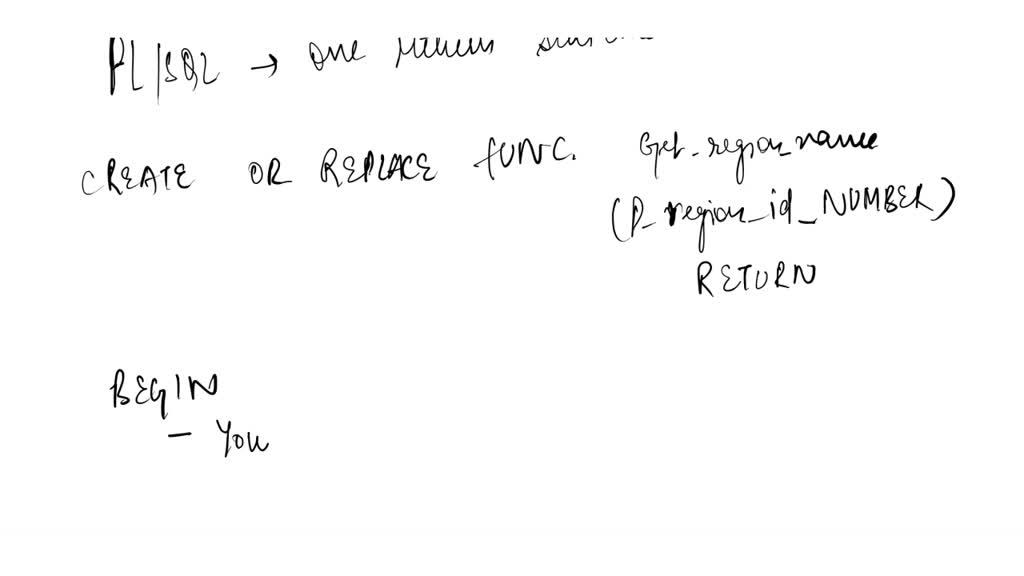 PL/SQL → One
CREATE OR REPLACE FUNC. Get_region_name
(P_region_id_NUMBER)
RETURN
BEGIN
– You